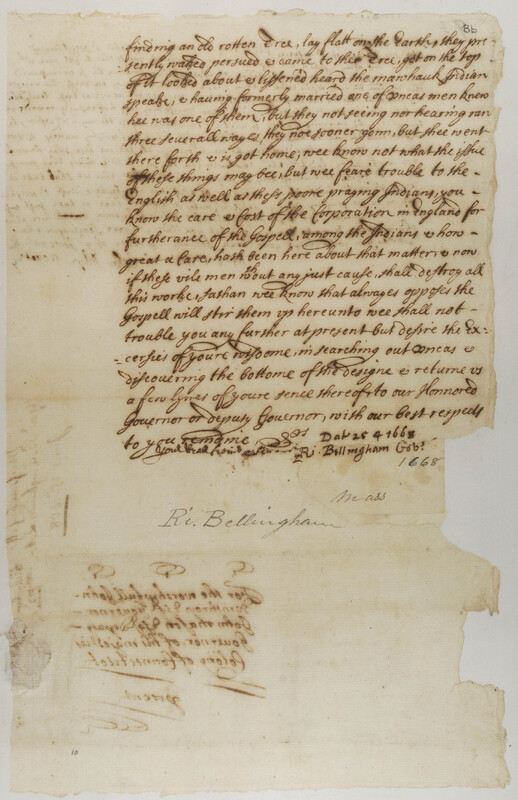 86
finding an old rotten tree, lay flatt on the Earth, they pre-
sently wated persued & came to this tree, got on the top
of it looked about & listened heard the manhauk Indian
speake, & having formerly married one of Vncas men knew
hee was one of them, but they not seeing nor hearing ran
three severall wayes, they noe sooner gonn, but shee went
there forth & is got home; wee know not what the issue
of these things may bee; but wee feare trouble to the
English as well as these poore praying Indians, you
know the care & Cost of the Corporation in England for
furtherance of the Gospell, among the Indians & how
great a Care, hath been here about that matter; & now
if these vile men wthout any just cause, shall destroy all
this worke, sathan wee know that alwayes opposes the
Gospell will stirr them vp hereunto wee shall not
trouble you any further at present but desire the Ex-
-cersies of youre wisdome, in searching out Vncas &
discovering the bottome of the designe & returne vs
a few lynes of youre sence thereof, to our Honnored
Governor or deputy Governor, with our best respects
to you remaine
Dat 25 4 1668
Ri. Bellingham Govr.
1668
Mass
Ri. Bellingham
For the worshipfull John
Winthrop Esqr governor
Governor of his majesties
Colony of Connecticot
present
10